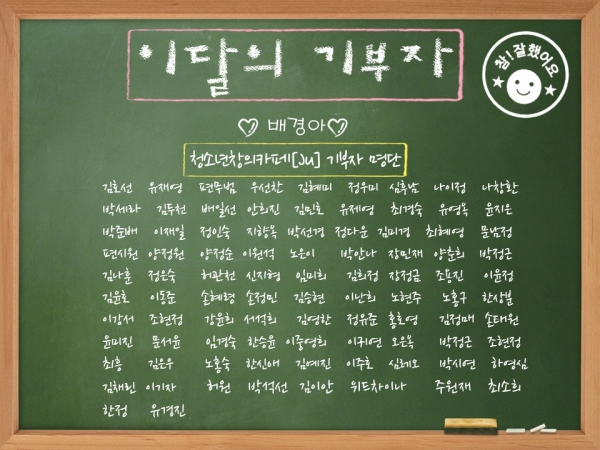 이달의 기부자
참! 잘했어요
♡ 배경아 ♡
청소년창의카페[JU] 기부자 명단
김호선 유재영 편주범 우선찬 김혜미 정우미 심후남 나이정 나창환
박세라 김두천 배일선 안희진 김민호 유제영 최경숙 유영옥 윤지은
박준배 이재일 정인숙 지향옥 박선경 정다운 김미경 최혜영 문남정
편시원 양정원 양정순 이원석 노은이 박안나 장민재 양춘희 박정근
김나훈 정은숙 허관천 신지형 임미희 김희정 장정금 조동진 이윤정
김윤호 이동준 손혜령 손정민 김승현 이난희 노현주 노홍구 한상분
이강서 조현정 강윤희 서석희 김영한 정유준 홍호영 김정매 손태원
윤미진 문서윤 임경숙 한승윤 이중영희 이귀연 오은옥 박정근 조현정
최홍 김은우 노홍숙 한신애 김예진 이주호 심레오 박시연 하영심
김채린 이기자 허원 박석선 김이안 위드차이나 주원재 최소희
한정 유경진